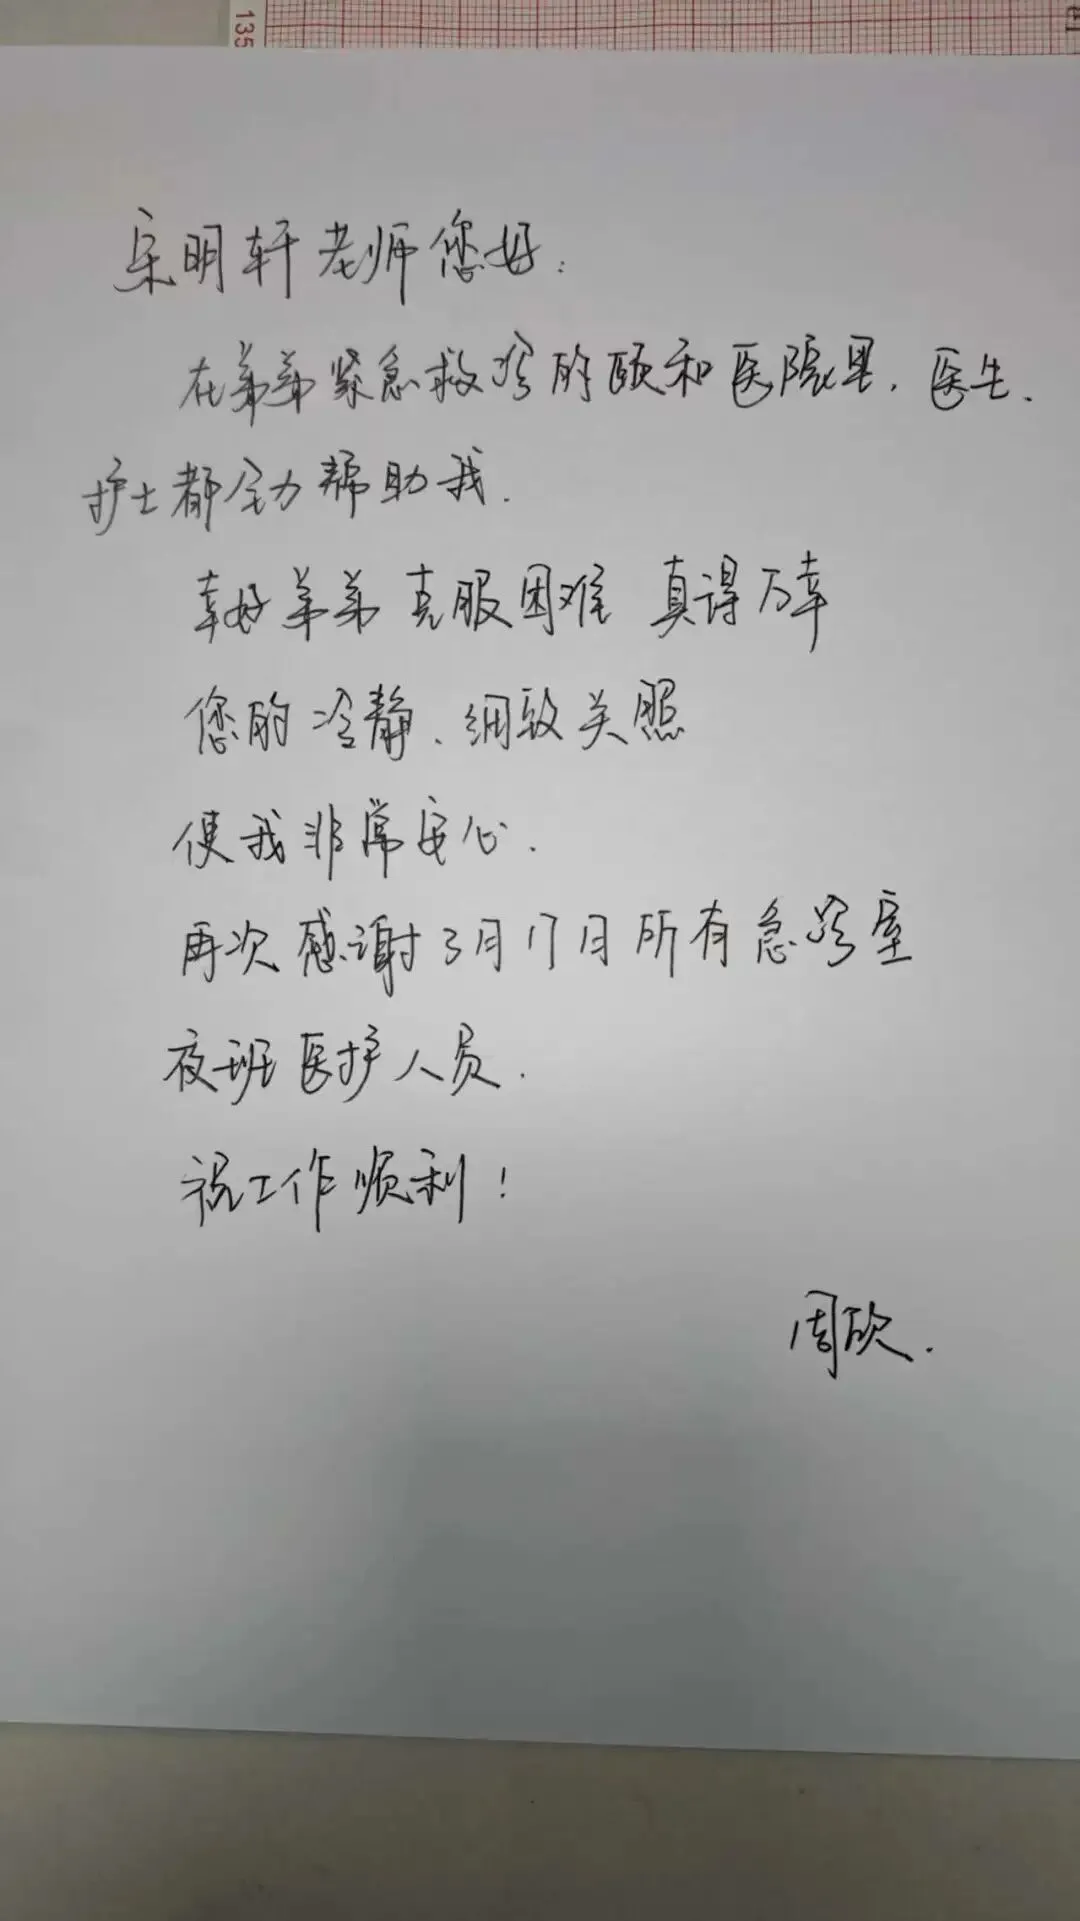 135
宋明轩老师您好：
在弟弟紧急救诊的颐和医院里，医生、
护士都全力帮助我．
幸好弟弟克服困难 真得万幸
您的冷静、细致关照
使我非常安心．
再次感谢3月17日所有急诊室
夜班医护人员．
祝工作顺利！
周欣．